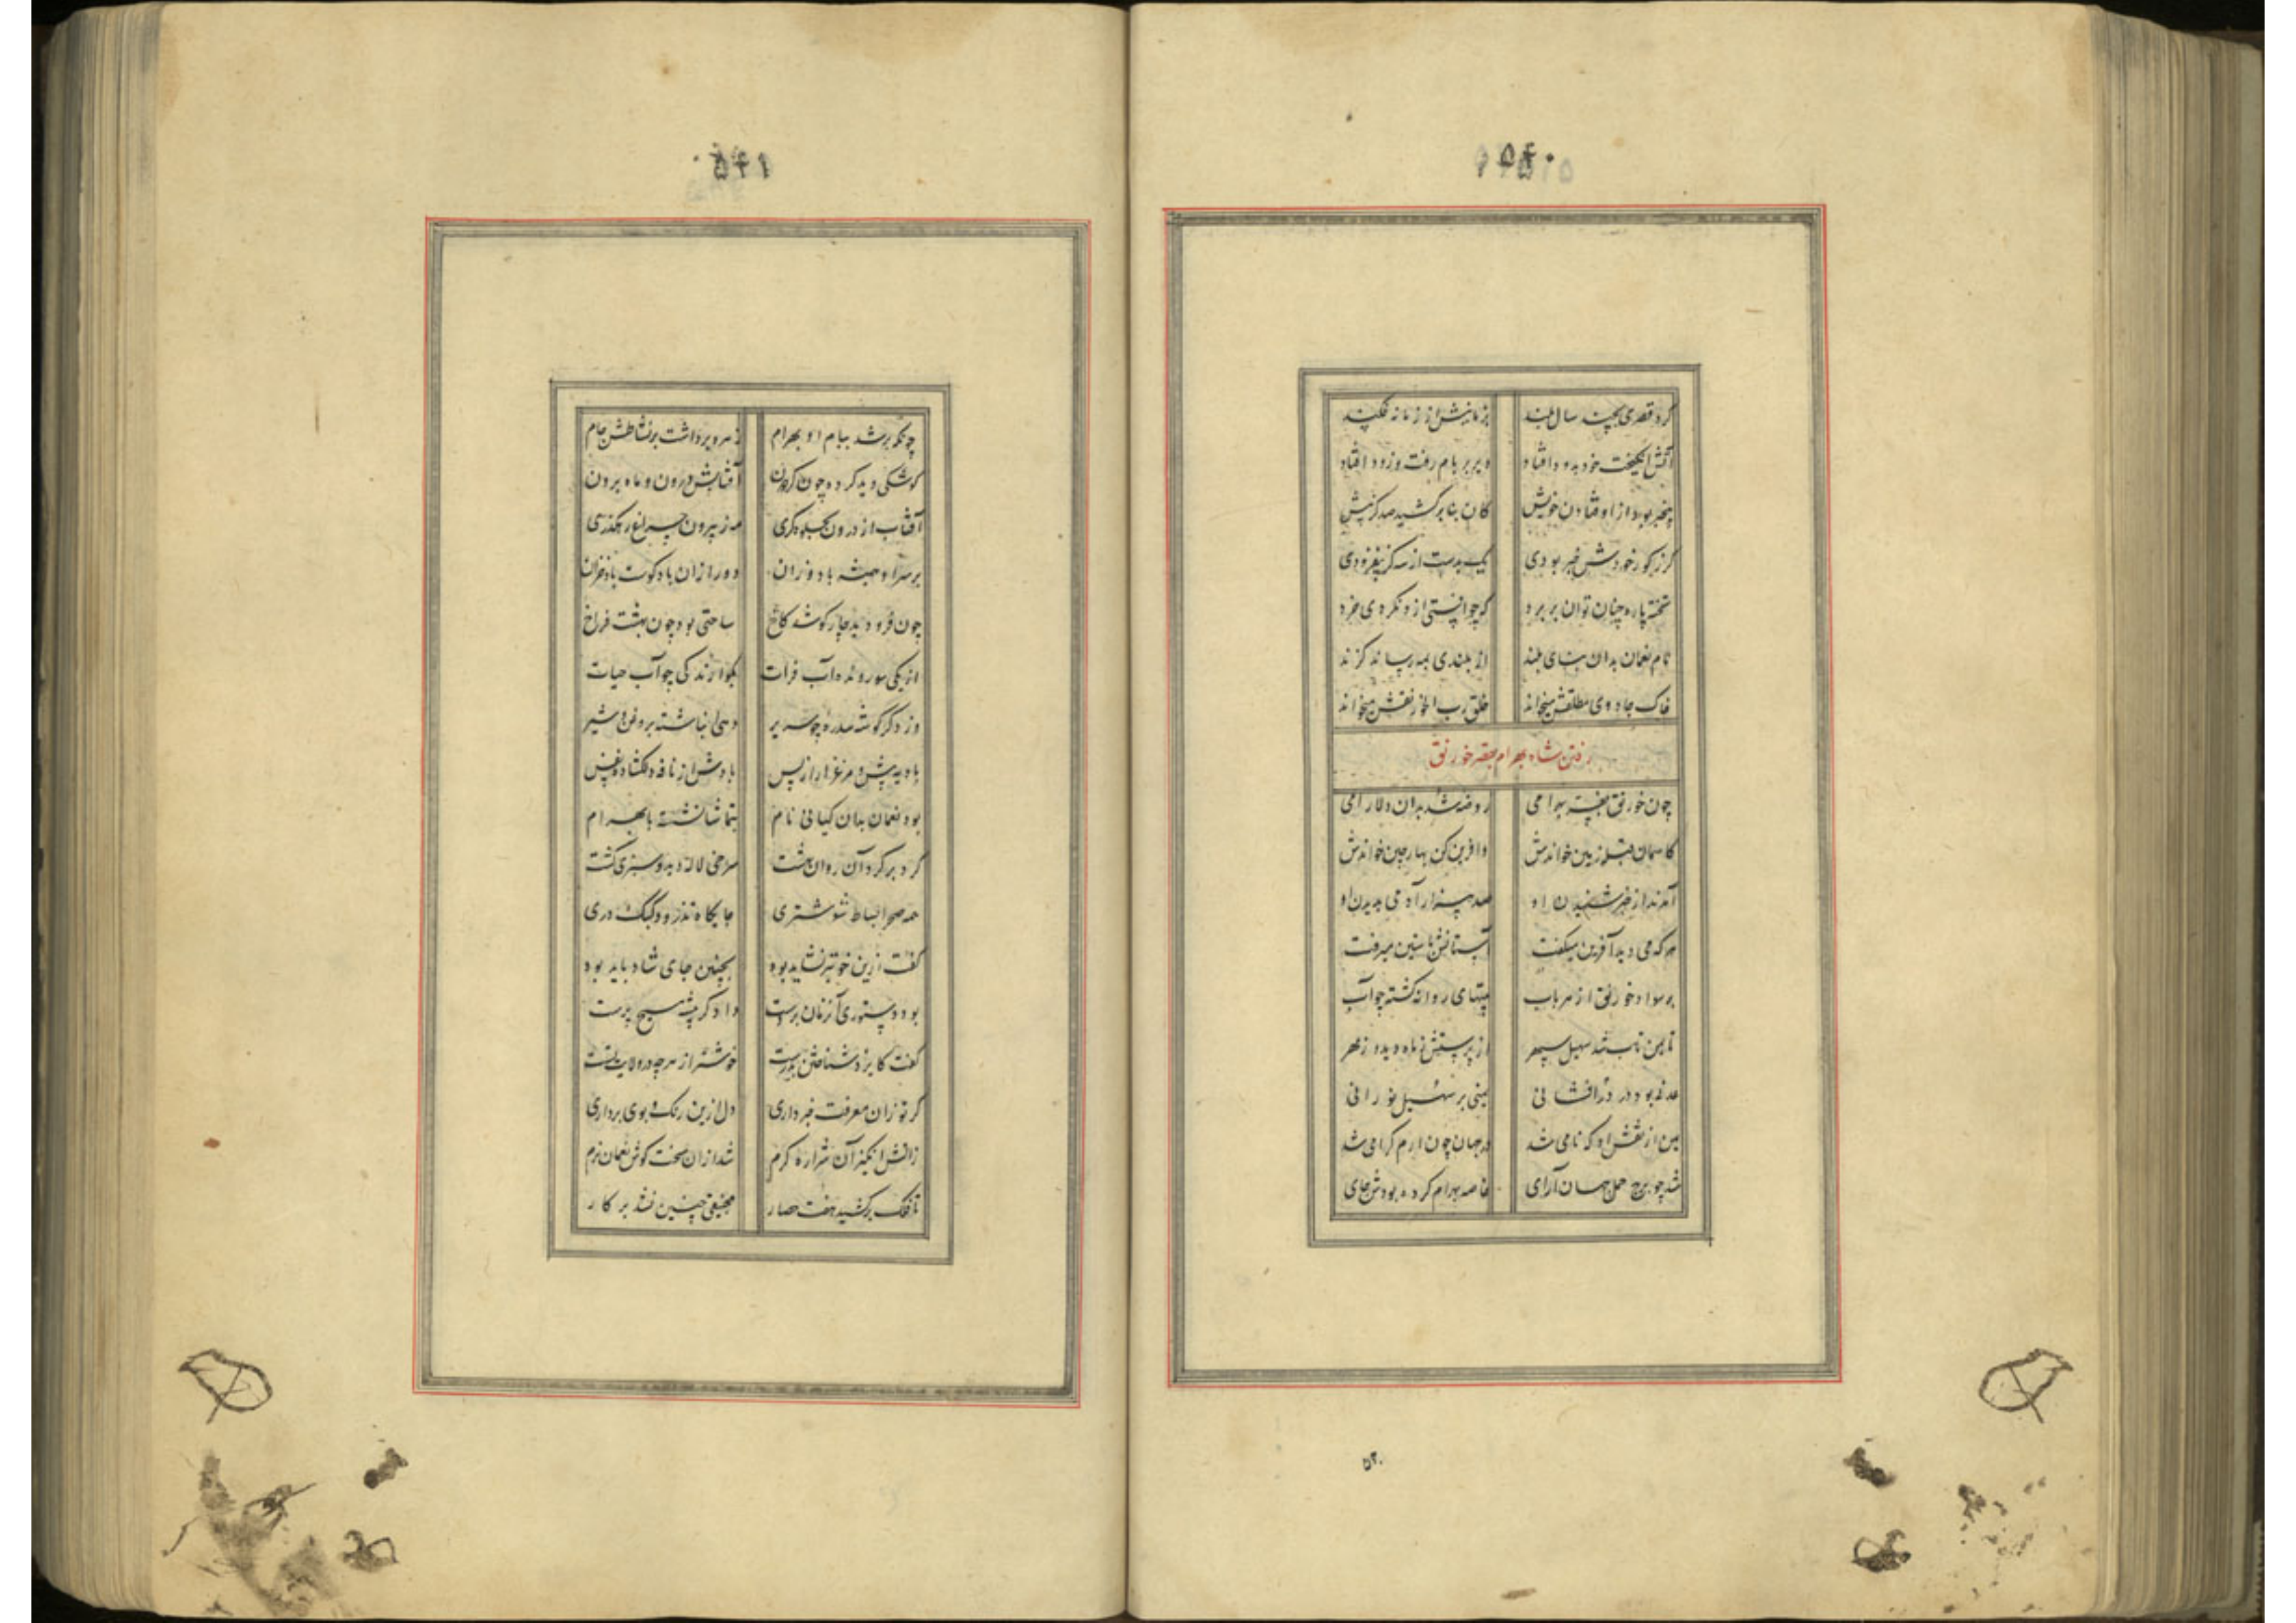 ۵۴۰
کرد قصری بچند سال بلند بزمانیش از زمانه فکند
آتش انگیخت خود بدود افتاد دیر بر بام رفت و زود افتاد
بیخبر بود از اوفتادن خویش کان بنا برکشید صد گز بیش
گر ز گور خودش خبر بودی یک بدست از سه گز نیفزودی
تخته پاره چنان توان بر برد که چو افتی ازو نگردی خرد
نام نعمان بدان بنای بلند از بلندی بمه رساند کزند
خاک جادوی مطلقش میخواند خلق رب الخورنقش میخواند
رفتن شاه بهرام بقصر خورنق
چون خورنق بفر بهرامی روضه شد بدان دلارامی
کاسمان قبله زمین خواندش وآفرین کن بهار چین خواندش
آمدند از خبر شنیدن او صد هزار آدمی بدیدن او
هر که می دید آفرین میگفت آستانش بآستین میرفت
بر سواد خورنق از هر باب بیتهای روانه گشته چو آب
تا یمن تاب شد سهیل سپهر از پرستش نه ماه دید و نه مهر
عدنی بود در درافشانی یمنی بر سهیل نورانی
یمن از نقش او که نامی شد در جهان چون ارم گرامی شد
شد چو برج حمل جهان آرای خاصه بهرام کرده بودش جای
۵۲۰
۵۴۱
چونکه بر شد ببام او بهرام زهره برداشت بر نشاطش جام
کوشکی دید کرده چون گردون آفتابش درون و ماه برون
آفتاب از درون بجلوه گری مه ز بیرون چراغ رهگذری
بر سر او همیشه باد وزان دور از آن باد کوست باد خزان
چون فرو دید چار گوشه کاخ ساحتی بود چون بهشت فراخ
از یکی سو رونده آب فرات بگوارندگی چو آب حیات
وز دگر گوشه سدره چو سریر دهی انباشته بروغن و شیر
بادیه پیش و مرغزار از پس بادش از نافه برگشاده نفس
بود نعمان بدان کیانی نام بتماشا نشسته با بهرام
گرد بر گرد آن روان بهشت سرخی لاله دید و سبزی کشت
همه صحرا بساط شوشتری جایگاه تذرو و کبک دری
گفت ازین خوبتر نشاید بود بچنین جای شاد باید بود
بود دستوری آنزمان بر دست دادگر پیشه مسیح پرست
گفت کایزد شناختن بدرست خوشتر از هر چه در ولایت تست
گر تو زان معرفت خبر داری دل ازین رنگ و بوی برداری
زآتش انگیز آن شراره گرم شد از آن سخت کوش نعمان نرم
تا فلک برکشید هفت حصار منجنیقی چنین نشد بر کار